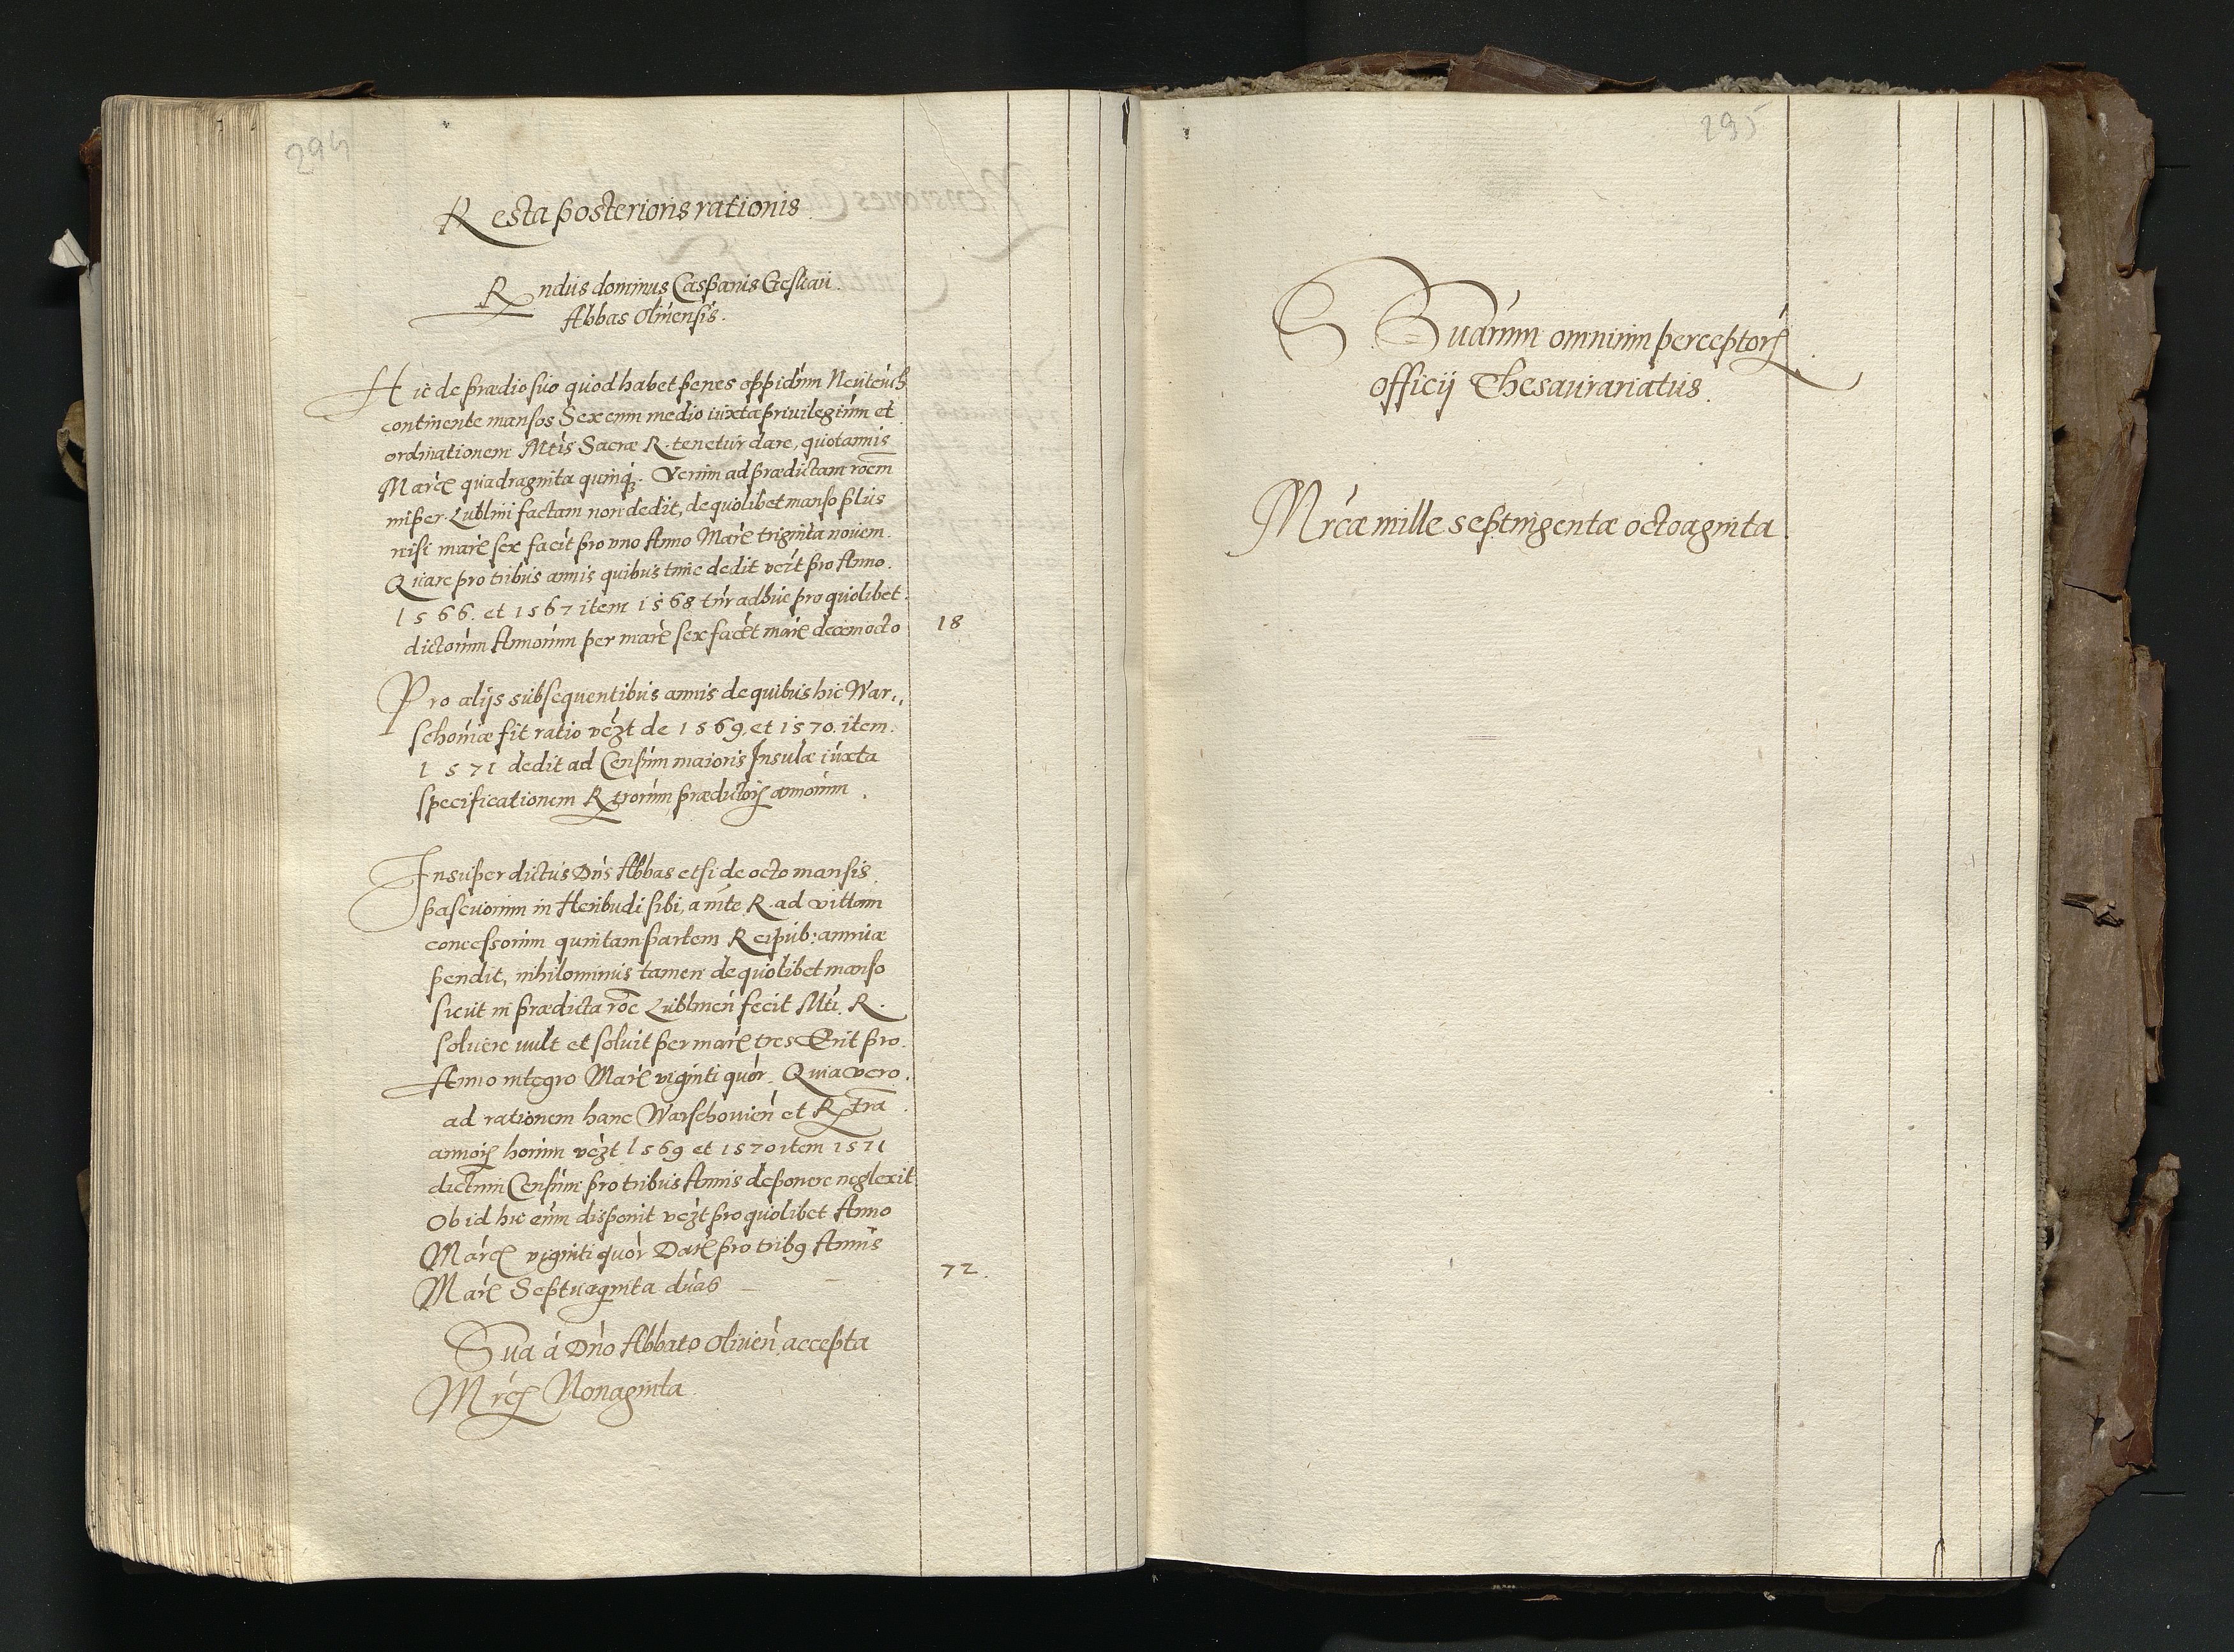 294
Resta posterioris rationis
Rndus dominus Casparus Geschau
Abbas Oliuensis.
Hic de prædio suo quod habet penes oppidum Neuteich
continente mansos Sex cum medio iuxta priuilegium et
ordinationem Mtis Sacræ R. tenetur dare, quotannis
Marc quadraginta quinq. Verum ad prædictam roem
nuper Lublini factam non dedit, de quolibet manso plus
nisi marc sex facit pro vno Anno Marc triginta nouem.
Quare pro tribus annis quibus tunc dedit vczt pro Anno.
1566. et 1567 item 1568 tnr adhuc pro quolibet.
dictorum Annorum per marc sex facit marc decem octo 18
Pro alijs subsequentibus annis de quibus hic War„
schouiæ fit ratio vczt de 1569. et 1570. item.
1571 dedit ad Censum maioris Insulæ iuxta
specificationem Rgrorum prædictor annorum.
Insuper dictus Dns Abbas etsi de octo mansis
pascuorum in Heribudi sibi, a mte R. ad vittam
concessorum quintam partem Reipub: annuæ
pendit, nihilominus tamen de quolibet manso
sicut in prædicta roe Lublinen fecit Mti. R.
soluere uult et soluit per marc tres Erit pro.
Anno integro Marc viginti quor. Quia vero.
ad rationem hanc Warschouien et Rgra
annor horum vczt 1569 et 1570 item 1571
dictum Censum pro tribus Annis deponere neglexit
Ob id hic eum disponit vczt pro quolibet Anno
Marc viginti quor Dat pro trib9 Annis
Marc Septuaginta duas 72.
Sua á Dno Abbate Oliuen accepta
Mrc Nonaginta.
295
Suarum omnium perceptor
officij Thesaurariatus.
Mrcæ mille septingentæ octoaginta.